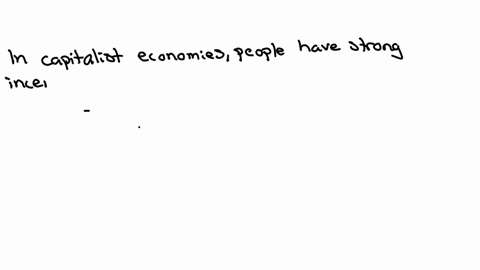 In capitalist economies, people have strong
ince